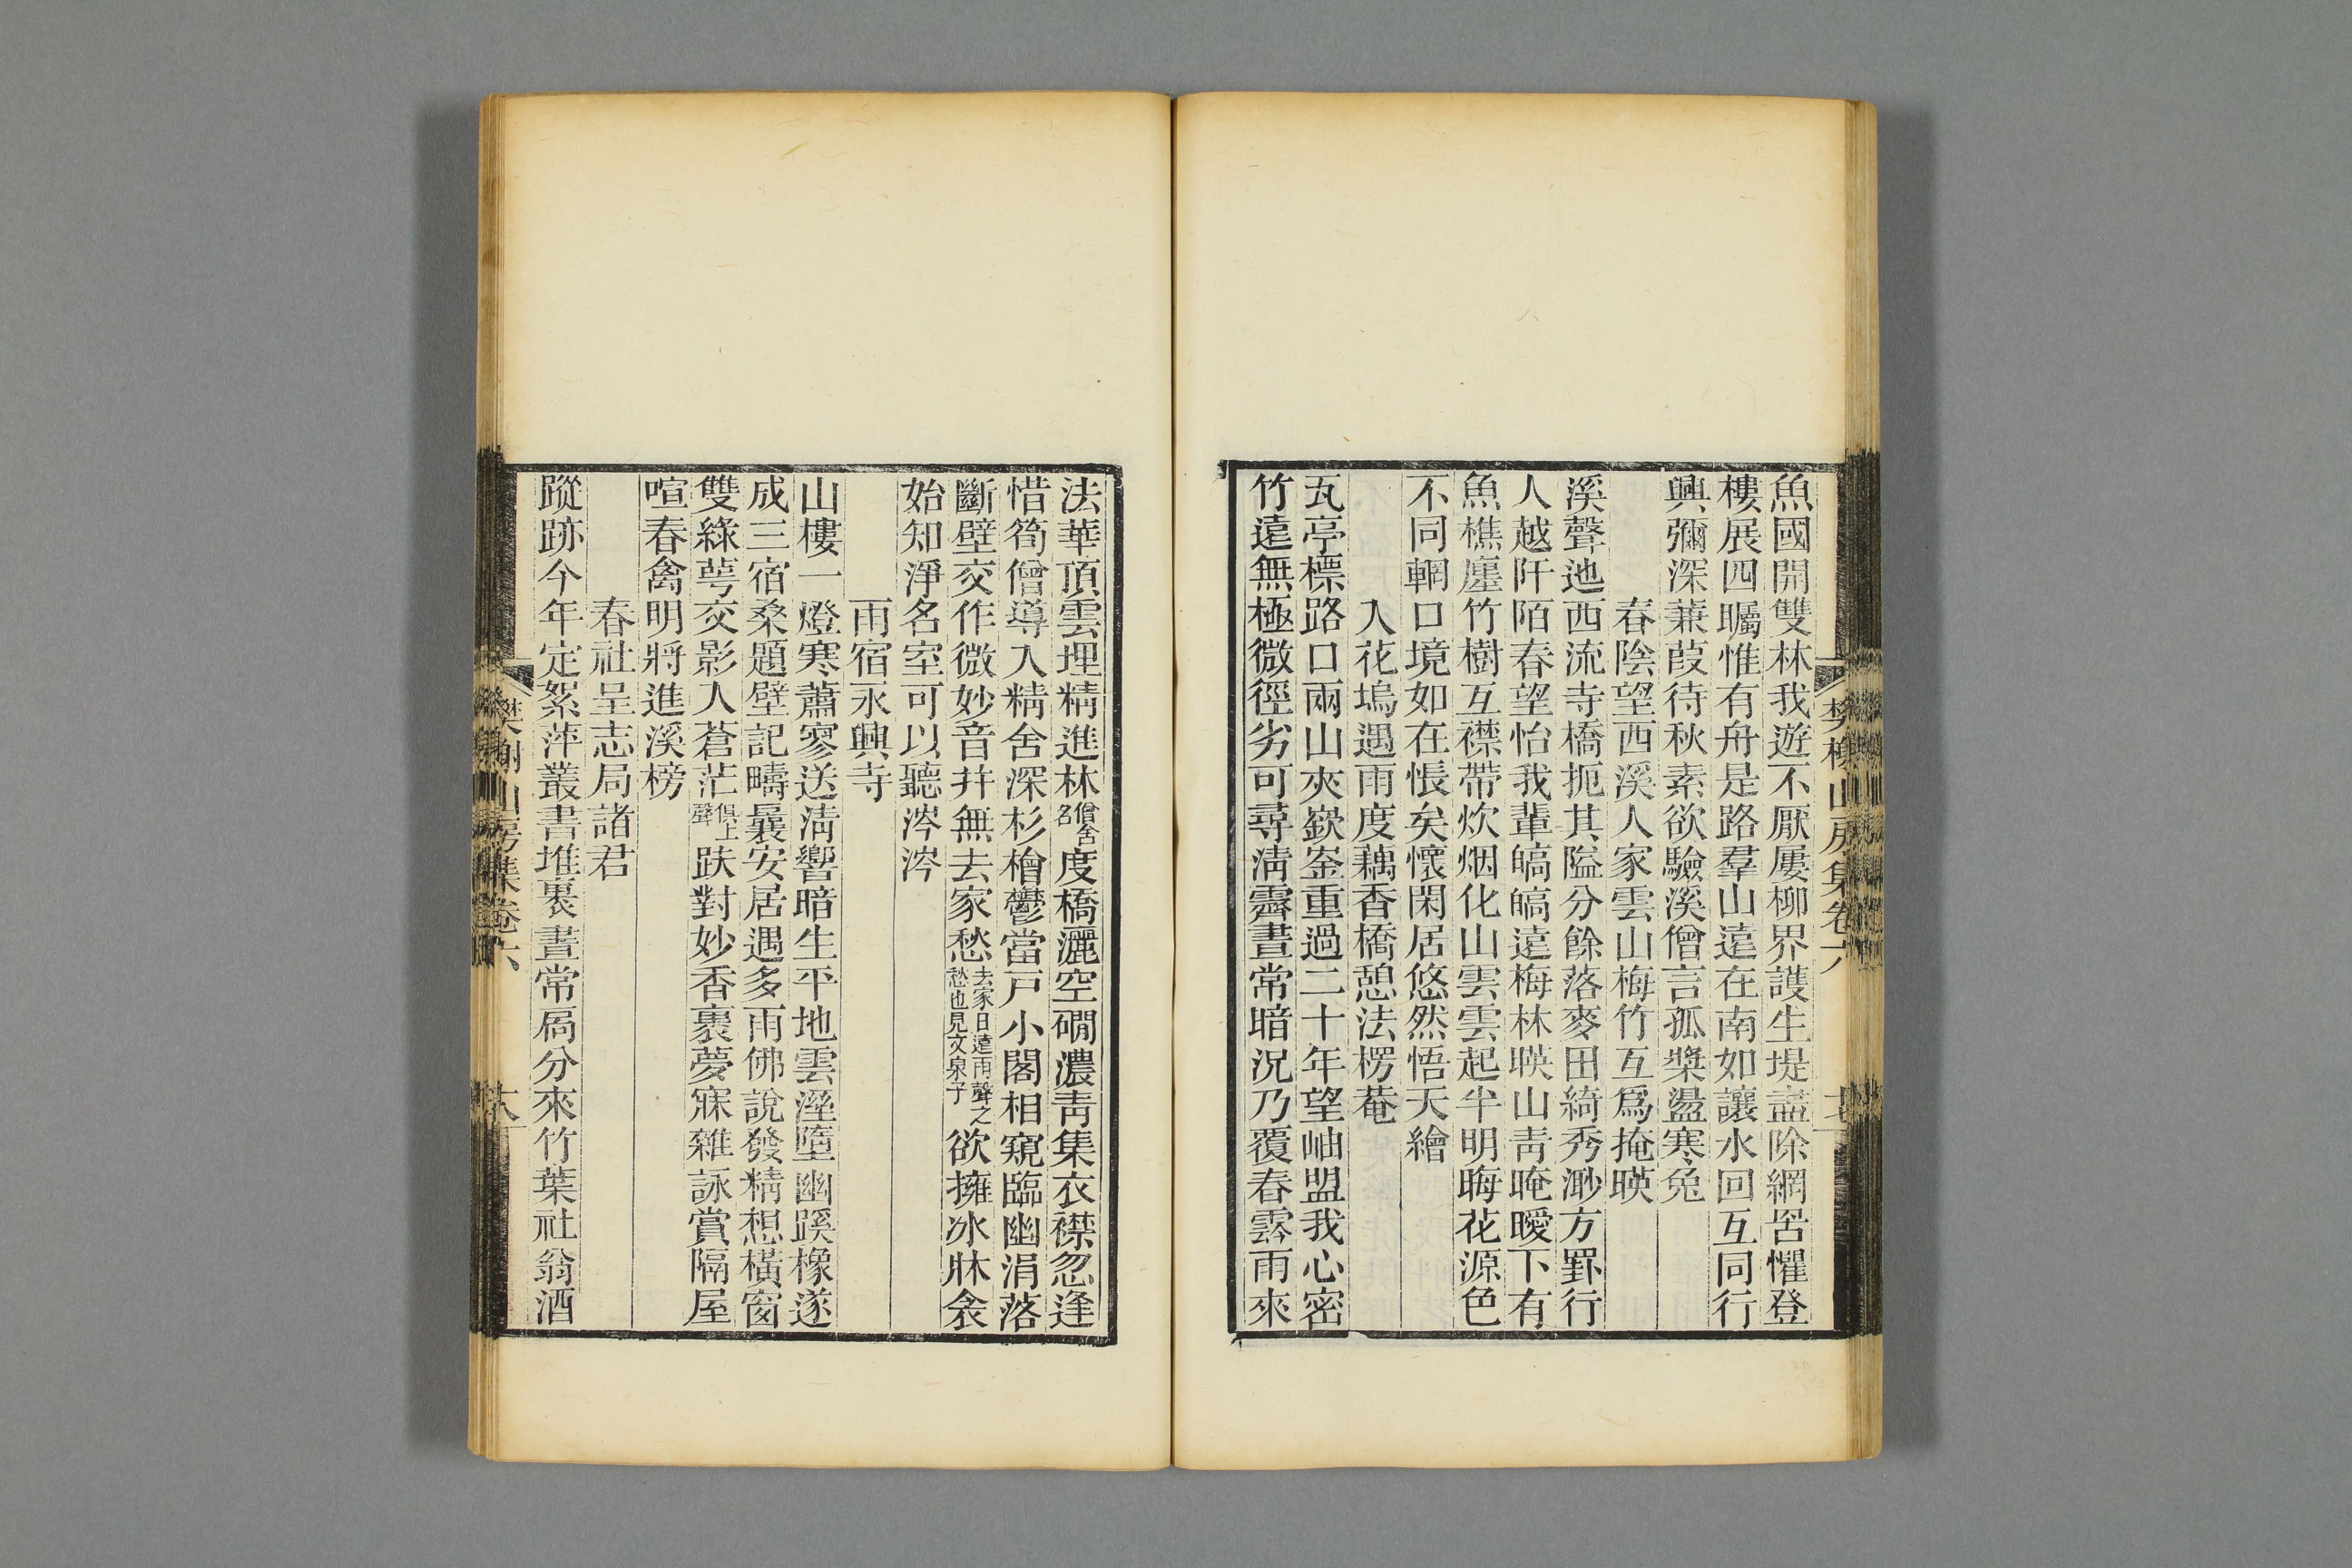 魚國開雙林我遊不厭屢柳界護生堤盡除網罟懼登
樓展四矚惟有舟是路羣山遠在南如讓水回互同行
興彌深蒹葭待秋素欲驗溪僧言孤槳盪寒兔
春陰望西溪人家雲山梅竹互爲掩暎
溪聲迆西流寺橋扼其隘分餘落麥田綺秀渺方罫行
人越阡陌春望怡我輩皜皜遠梅林暎山靑晻曖下有
魚樵廛竹樹互襟帶炊烟化山雲雲起半明晦花源色
不同輞口境如在悵矣懷閑居悠然悟天繪
入花塢遇雨度藕香橋憩法楞菴
瓦亭標路口兩山夾嶔崟重過二十年望岫盟我心密
竹遠無極微徑劣可尋淸霽晝常暗況乃覆春霧雨來
樊榭山房集卷六
法華頂雲埋精進林僧舍名度橋灑空磵濃靑集衣襟忽逢
惜筍僧導入精舍深杉檜鬱當戸小閣相窺臨幽涓落
斷壁交作微妙音幷無去家愁去家日遠雨聲之愁也見文泉子欲擁冰牀衾
始知淨名室可以聽涔涔
雨宿永興寺
山樓一燈寒蕭寥送淸響暗生平地雲溼墮幽蹊橡遂
成三宿桑題壁記疇曩安居遇多雨佛說發精想橫窗
雙綠萼交影人蒼茫俱上聲趺對妙香裹夢寐雜詠賞隔屋
喧春禽明將進溪榜
春社呈志局諸君
蹤跡今年定絮萍叢書堆裏晝常扃分來竹葉社翁酒
樊榭山房集卷六